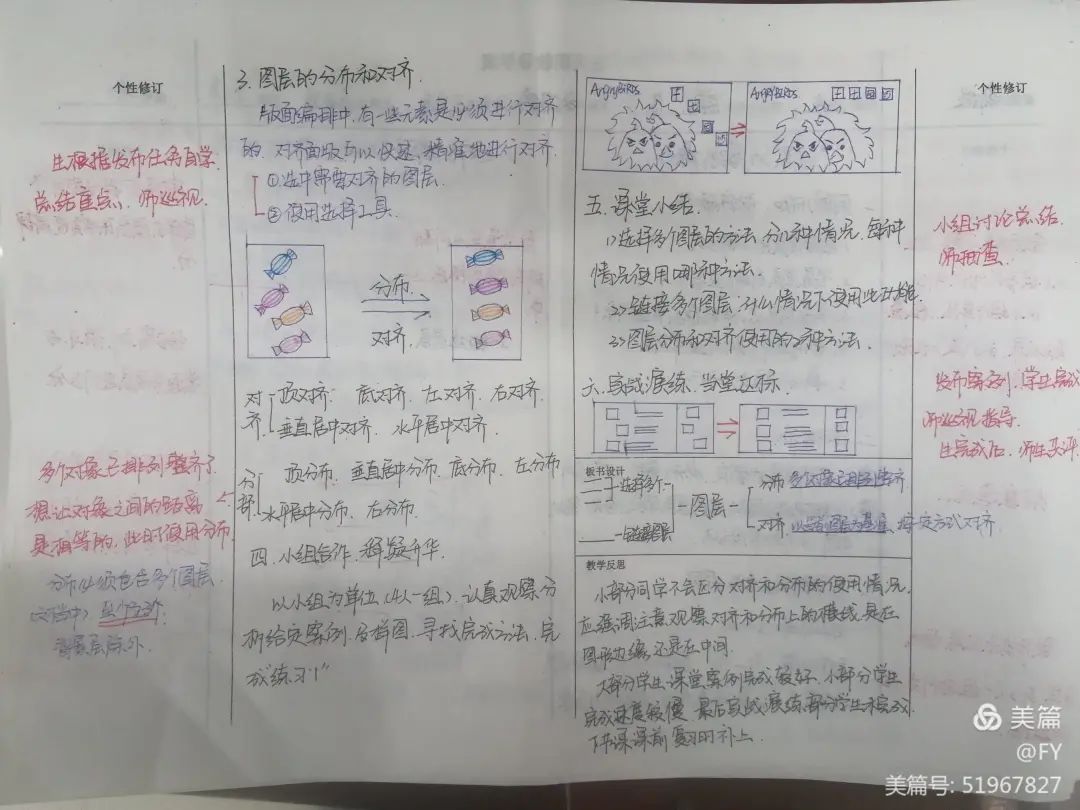 个性修订
生根据发布任务自学
总结重点，师巡视.
多个对象已排列整齐了
想让对象之间的距离
是相等的,此时使用分布
分布必须包含多个图层
(文档中)
背景层除外.
3. 图层的分布和对齐.
版面编排中,有一些元素是必须进行对齐
的. 对齐面板可以快速、精准地进行对齐.
①选中需要对齐的图层.
②使用选择工具.
分布.
对齐.
对齐
顶对齐: 底对齐. 左对齐. 右对齐.
垂直居中对齐. 水平居中对齐.
分部
顶分布. 垂直居中分布. 底分布. 左分布
水平居中分布. 右分布.
四. 小组合作. 释疑升华.
以小组为单位(4人一组).认真观察分
析给定案例.合样图.寻找完成方法.完
成"练习1"
AngryBirds
AngryBirds
五. 课堂小结.
1>选择多个图层的方法.分几种情况.每种
情况使用哪种方法.
2>链接多个图层:什么情况下使用此功能.
3>图层分布和对齐使用的2种方法.
六. 实战演练. 当堂达标.
板书设计
选择多个
链接图层
图层
分布 多个对象已排列整齐
对齐. 以当前图层为基准, 按一定方式对齐
教学反思
小部分同学不会区分对齐和分布的使用情况.
应强调注意观察对齐和分布上的横线.是在
图形边缘,还是在中间.
大部分学生课堂案例完成较好.小部分学生
完成速度较慢. 最后实战演练部分学生未完成
下节课课前复习时补上.
个性修订
小组讨论总结.
师抽查.
发布案例.学生完成
师巡视指导.
生完成后. 师生互评.
美篇
@FY
美篇号: 51967827